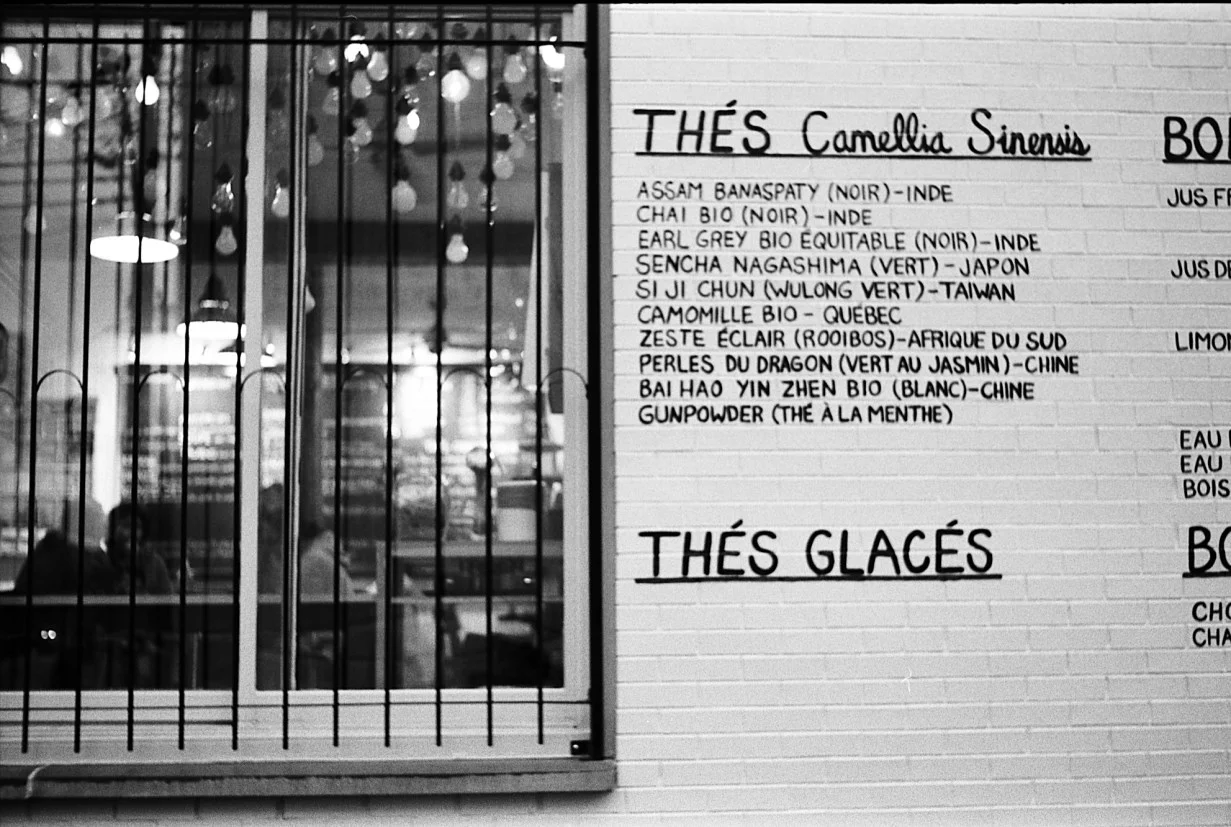 THÉS Camellia Sinensis
ASSAM BANASPATY (NOIR)-INDE
CHAI BIO (NOIR)-INDE
EARL GREY BIO ÉQUITABLE (NOIR)-INDE
SENCHA NAGASHIMA (VERT)-JAPON
SI JI CHUN (WULONG VERT)-TAIWAN
CAMOMILLE BIO - QUÉBEC
ZESTE ÉCLAIR (ROOIBOS)-AFRIQUE DU SUD
PERLES DU DRAGON (VERT AU JASMIN)-CHINE
BAI HAO YIN ZHEN BIO (BLANC)-CHINE
GUNPOWDER (THÉ À LA MENTHE)
THÉS GLACÉS
JUS
JUS
EAU
EAU